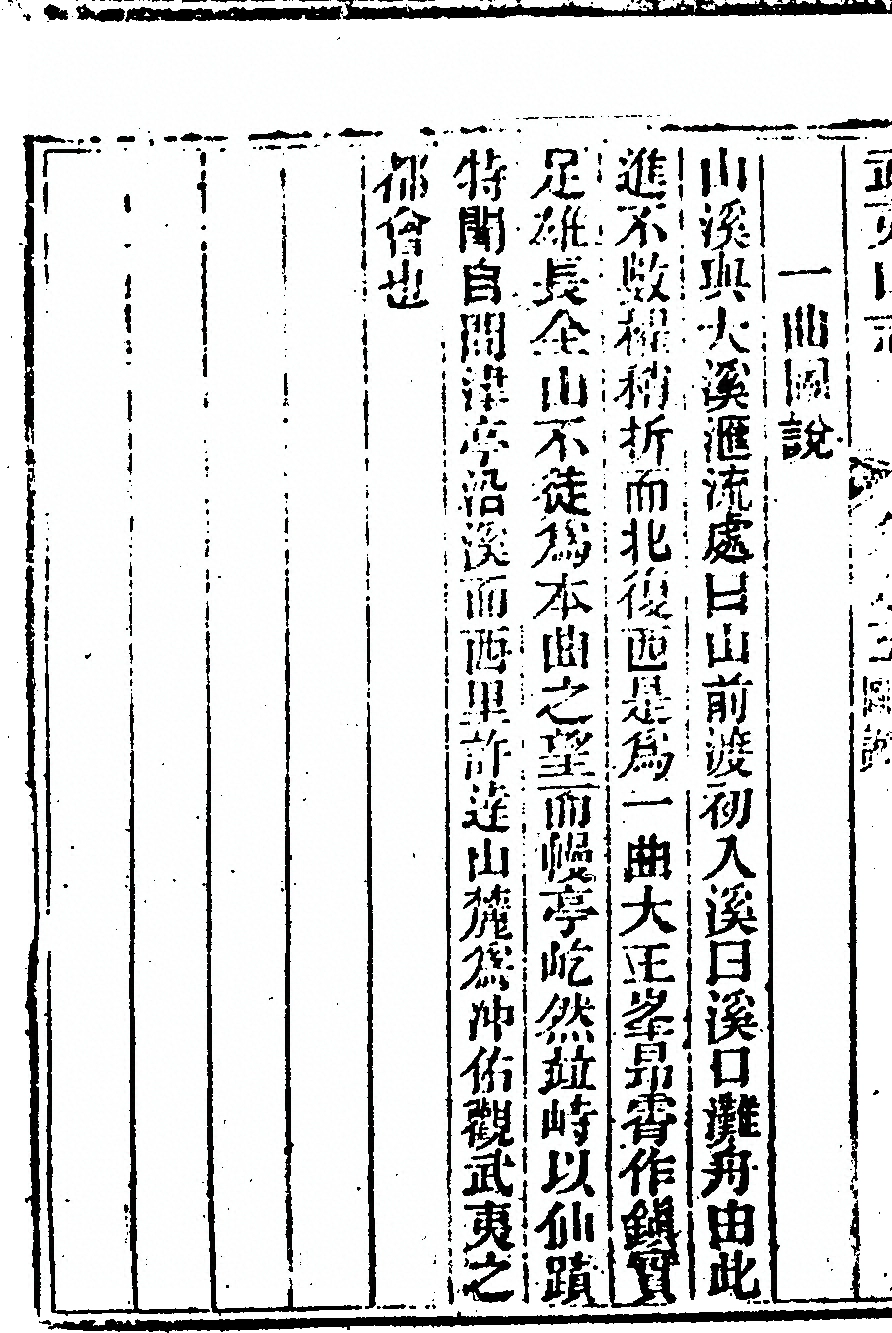 一曲圖說
山溪與大溪滙流處曰山前渡初入溪曰溪口灘舟由此
進不數櫂稍折而北復西是爲一曲大王峯昂霄作鎮實
足雄長全山不徒爲本曲之望而幔亭屹然竝峙以仙蹟
特聞自問津亭沿溪而西里許達山麓爲冲佑觀武夷之
都會也